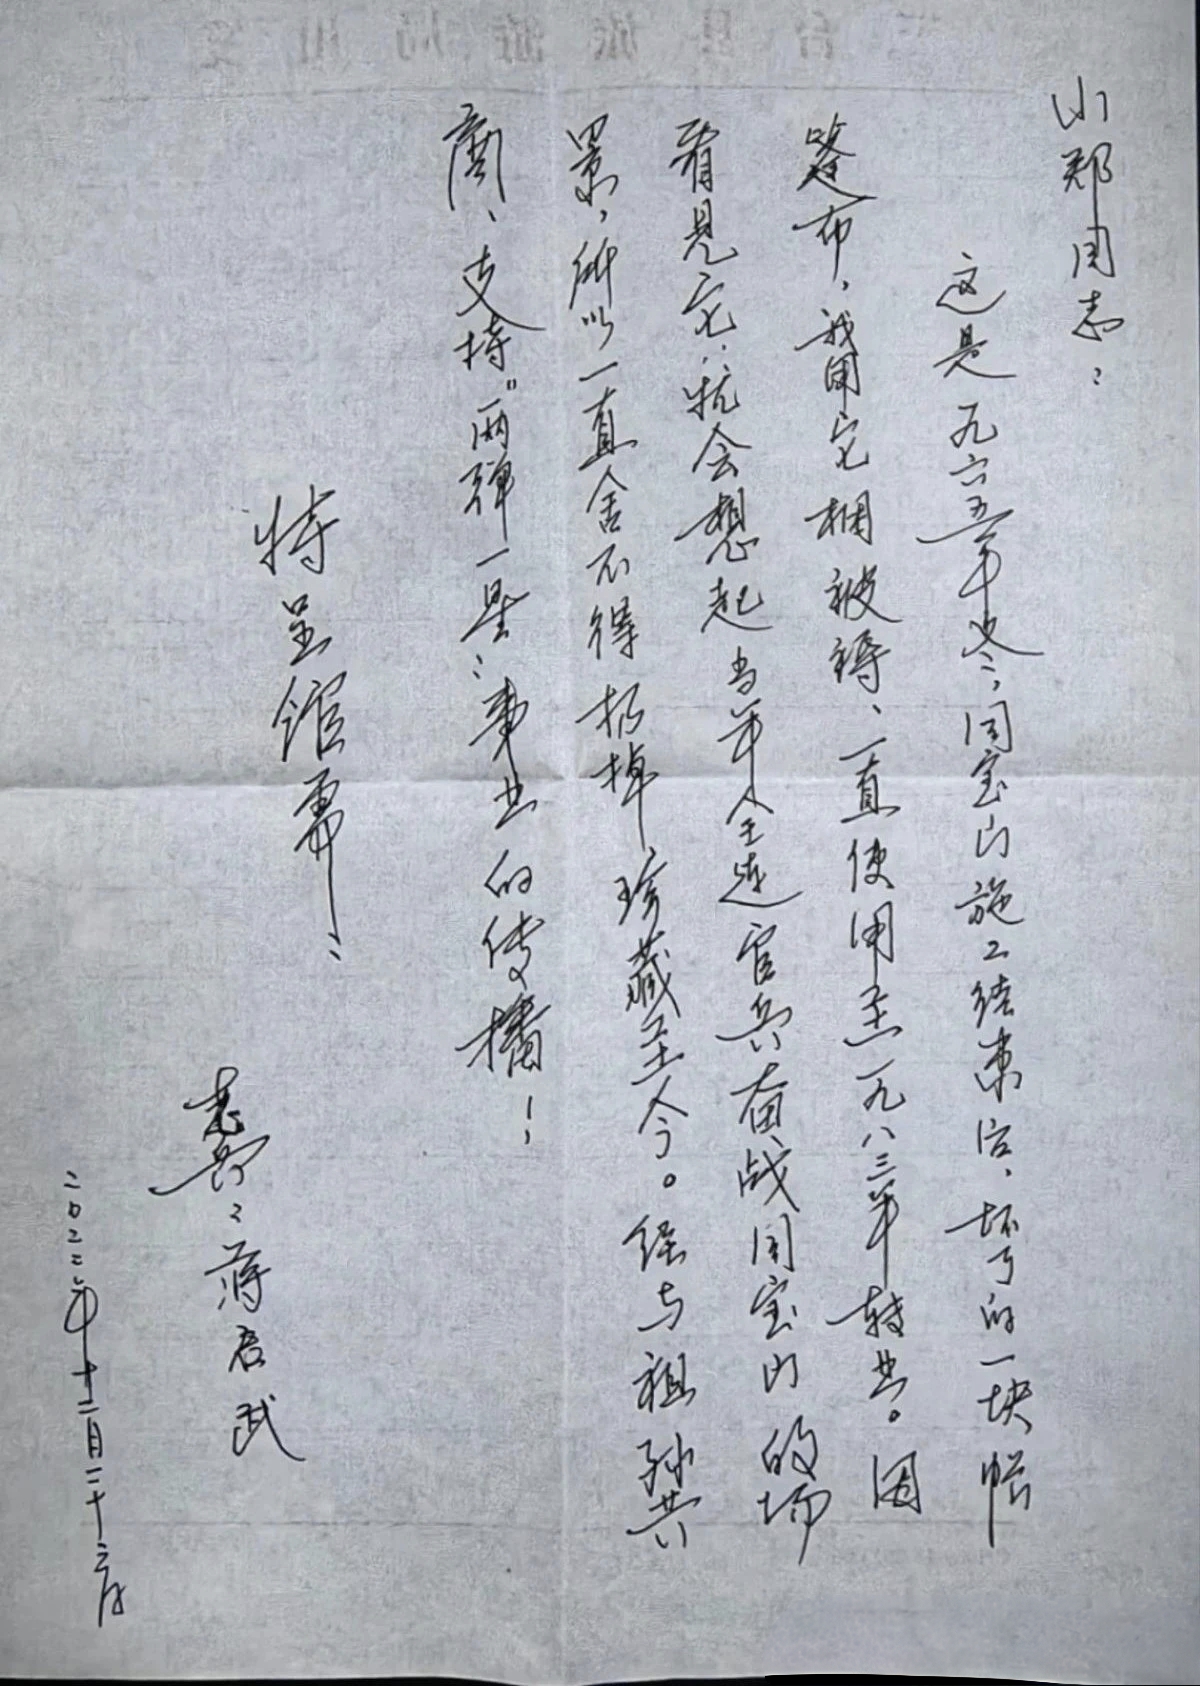 小郑同志：
这是一九六五年冬，国宝山施工结束后，坏了的一块帐
篷布，我用它捆被褥、一直使用至一九八三年转业。因
看见它：就会想起当年全连官兵奋战国宝山的场
景，所以一直舍不得扔掉，珍藏至今。经与祖孙共
商、支持“两弹一星”事业的传播！
特呈馆存：
老兵：蒋启武
二〇二二年十二月二十六日
台县旅游局用笺